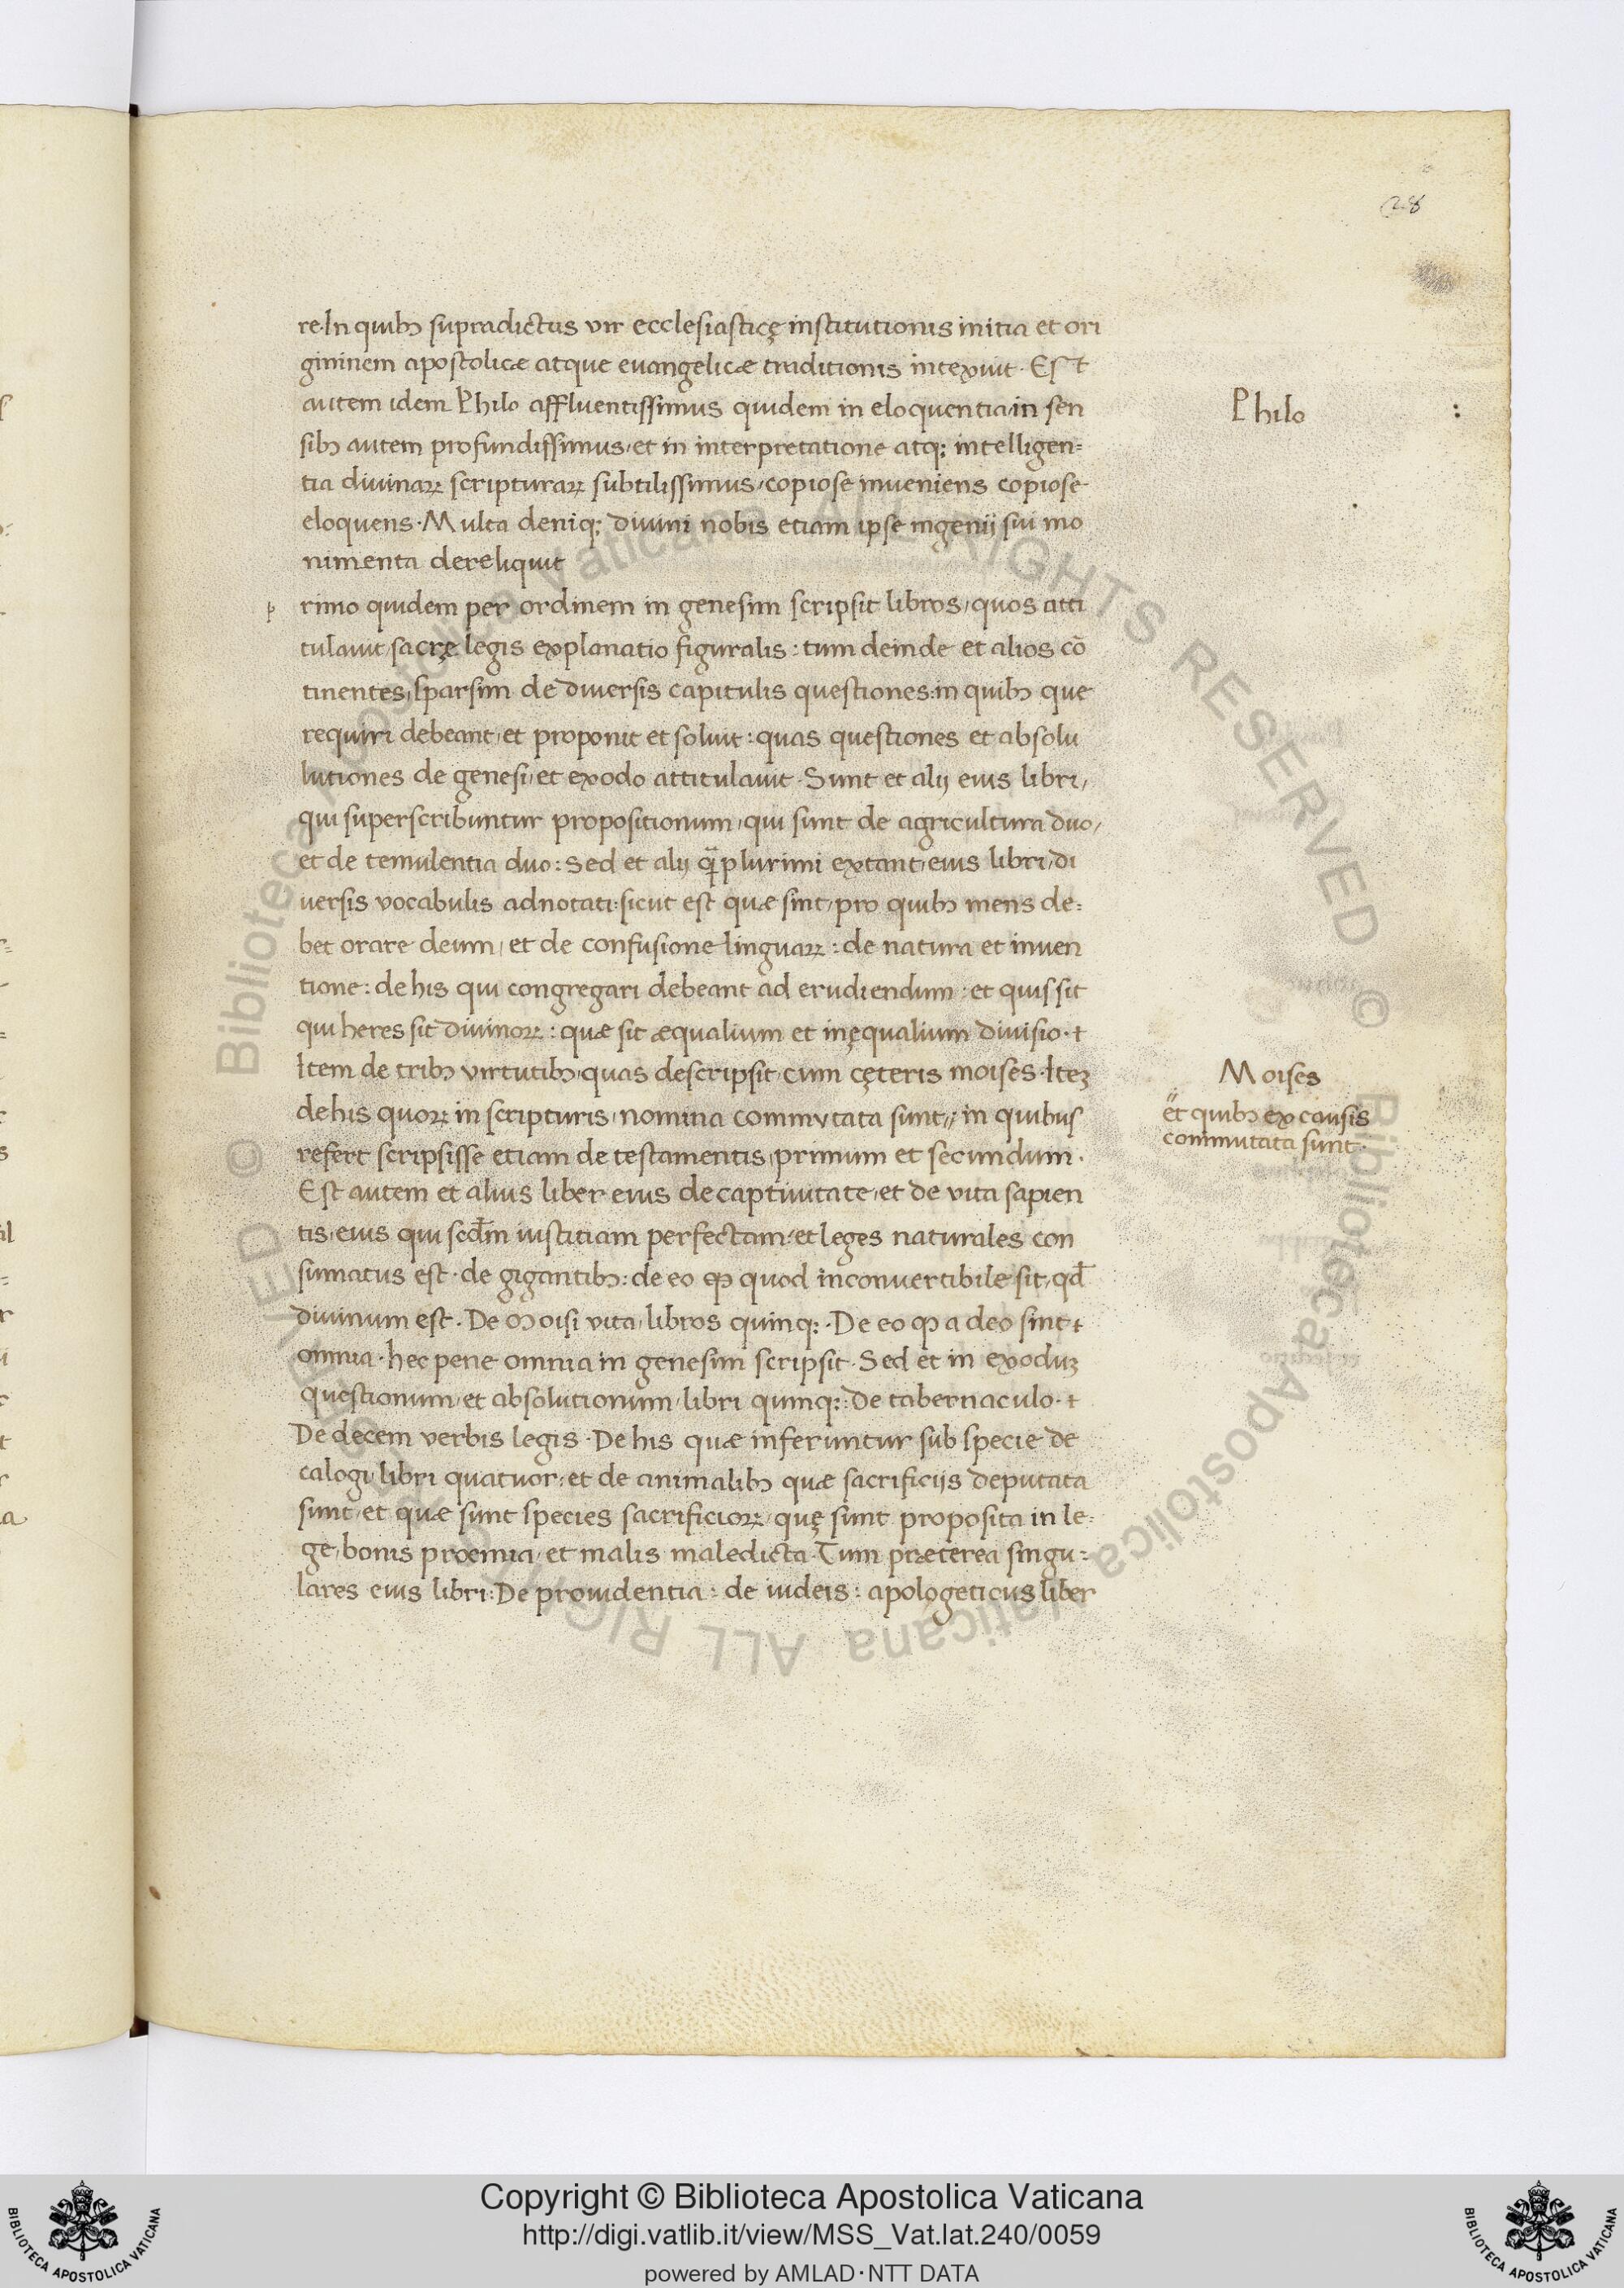 28
re·In quibꝫ supradictus vir ecclesiasticę institutionis initia et ori
gininem apostolicæ atque euangelicæ traditionis intexuit· Est
autem idem Philo affluentissimus quidem in eloquentia in sen
sibꝫ autem profundissimus, et in interpretatione atq; intelligen=
tia diuinaꝝ scripturaꝝ subtilissimus, copiose inueniens copiose
eloquens· Multa deniq; diuini nobis etiam ipse ingenij sui mo
nimenta dereliquit
p rimo quidem per ordinem in genesim scripsit libros, quos atti
tulauit, sacrę legis explanatio figuralis: tum deinde et alios cō
tinentes, sparsim de diuersis capitulis questiones: in quibꝫ que
requiri debeant, et proponit et soluit: quas questiones et absolu
lutiones de genesi, et exodo attitulauit· Sunt et alij eius libri,
qui superscribuntur propositionum, qui sunt de agricultura duo,
et de temulentia duo: Sed et alij q̄plurimi extant, eius libri, di
uersis vocabulis adnotati: sicut est quæ sint, pro quibꝫ mens de=
bet orare deum, et de confusione linguaꝝ: de natura et inuen
tione: de his qui congregari debeant ad erudiendum: et quis sit
qui heres sit diuinoꝝ: quæ sit æqualium et inęqualium diuisio·†
Item de tribꝫ virtutibꝫ, quas descripsit, cum cęteris moises· Iteꝫ
de his quoꝝ in scripturis, nomina commvtata sunt,, in quibus
refert scripsisse etiam de testamentis, primum et secundum·
Est autem et alius liber eius de captiuitate, et de vita sapien
tis, eius qui scd̄m iustitiam perfectam, et leges naturales con
sumatus est· de gigantibꝫ: de eo ꝙ quod inconuertibile sit, qd̄
diuinum est· De Moisi vita, libros quinq;· De eo ꝙ a deo sint†
omnia· hec pene omnia in genesim scripsit· Sed et in exoduꝫ
questionum, et absolutionum, libri quinq;: De tabernaculo·†
De decem verbis legis· De his quæ inferuntur sub specie de
calogi, libri quatuor: et de animalibꝫ quæ sacrificijs deputata
sunt, et quæ sunt species sacrificioꝝ, quę sunt proposita in le=
ge, bonis proemia, et malis maledicta· Tum præterea singu=
lares eius libri: De prouidentia: de iudeis: apologeticus liber
Philo :
Moises
,, et quibꝫ ex causis
commutata sunt·
© Biblioteca Apostolica Vaticana ALL RIGHTS RESERVED © Biblioteca Apostolica Vaticana ALL RIGHTS RESERVED
Copyright © Biblioteca Apostolica Vaticana
http://digi.vatlib.it/view/MSS_Vat.lat.240/0059
powered by AMLAD·NTT DATA
BIBLIOTECA APOSTOLICA VATICANA
BIBLIOTECA APOSTOLICA VATICANA